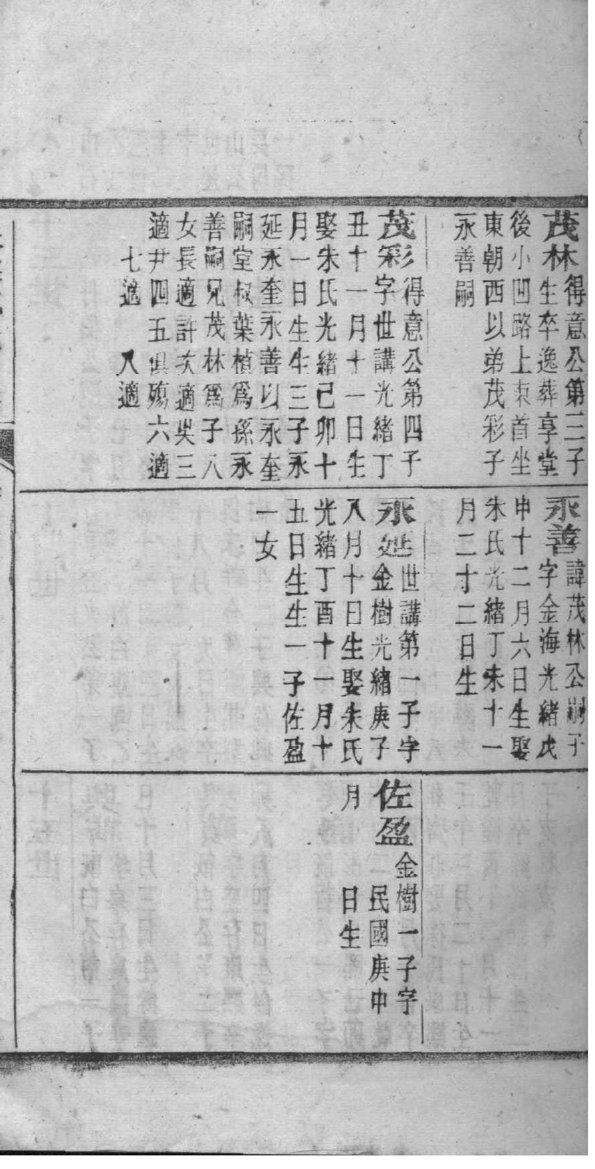 茂林得意公第三子
生卒逸葬享堂
後小凹路上東首坐
東朝西以弟茂彩子
永善嗣
茂彩得意公第四子
字世講光緒丁
丑十一月十一日生
娶朱氏光緒己卯十
月一日生生三子永
延永奎永善以永奎
嗣堂叔葉植爲孫永
善嗣兄茂林爲子八
女長適許次適吳三
適尹四五俱殤六適
七適 八適
永善諱茂林公嗣子
字金海光緒戊
申十二月六日生娶
朱氏光緒丁未十一
月二十二日生
永延世講第一子字
金樹光緒庚子
八月十日生娶朱氏
光緒丁酉十一月十
五日生生一子佐盈
一女
佐盈金樹一子字
民國庚申
月 日生